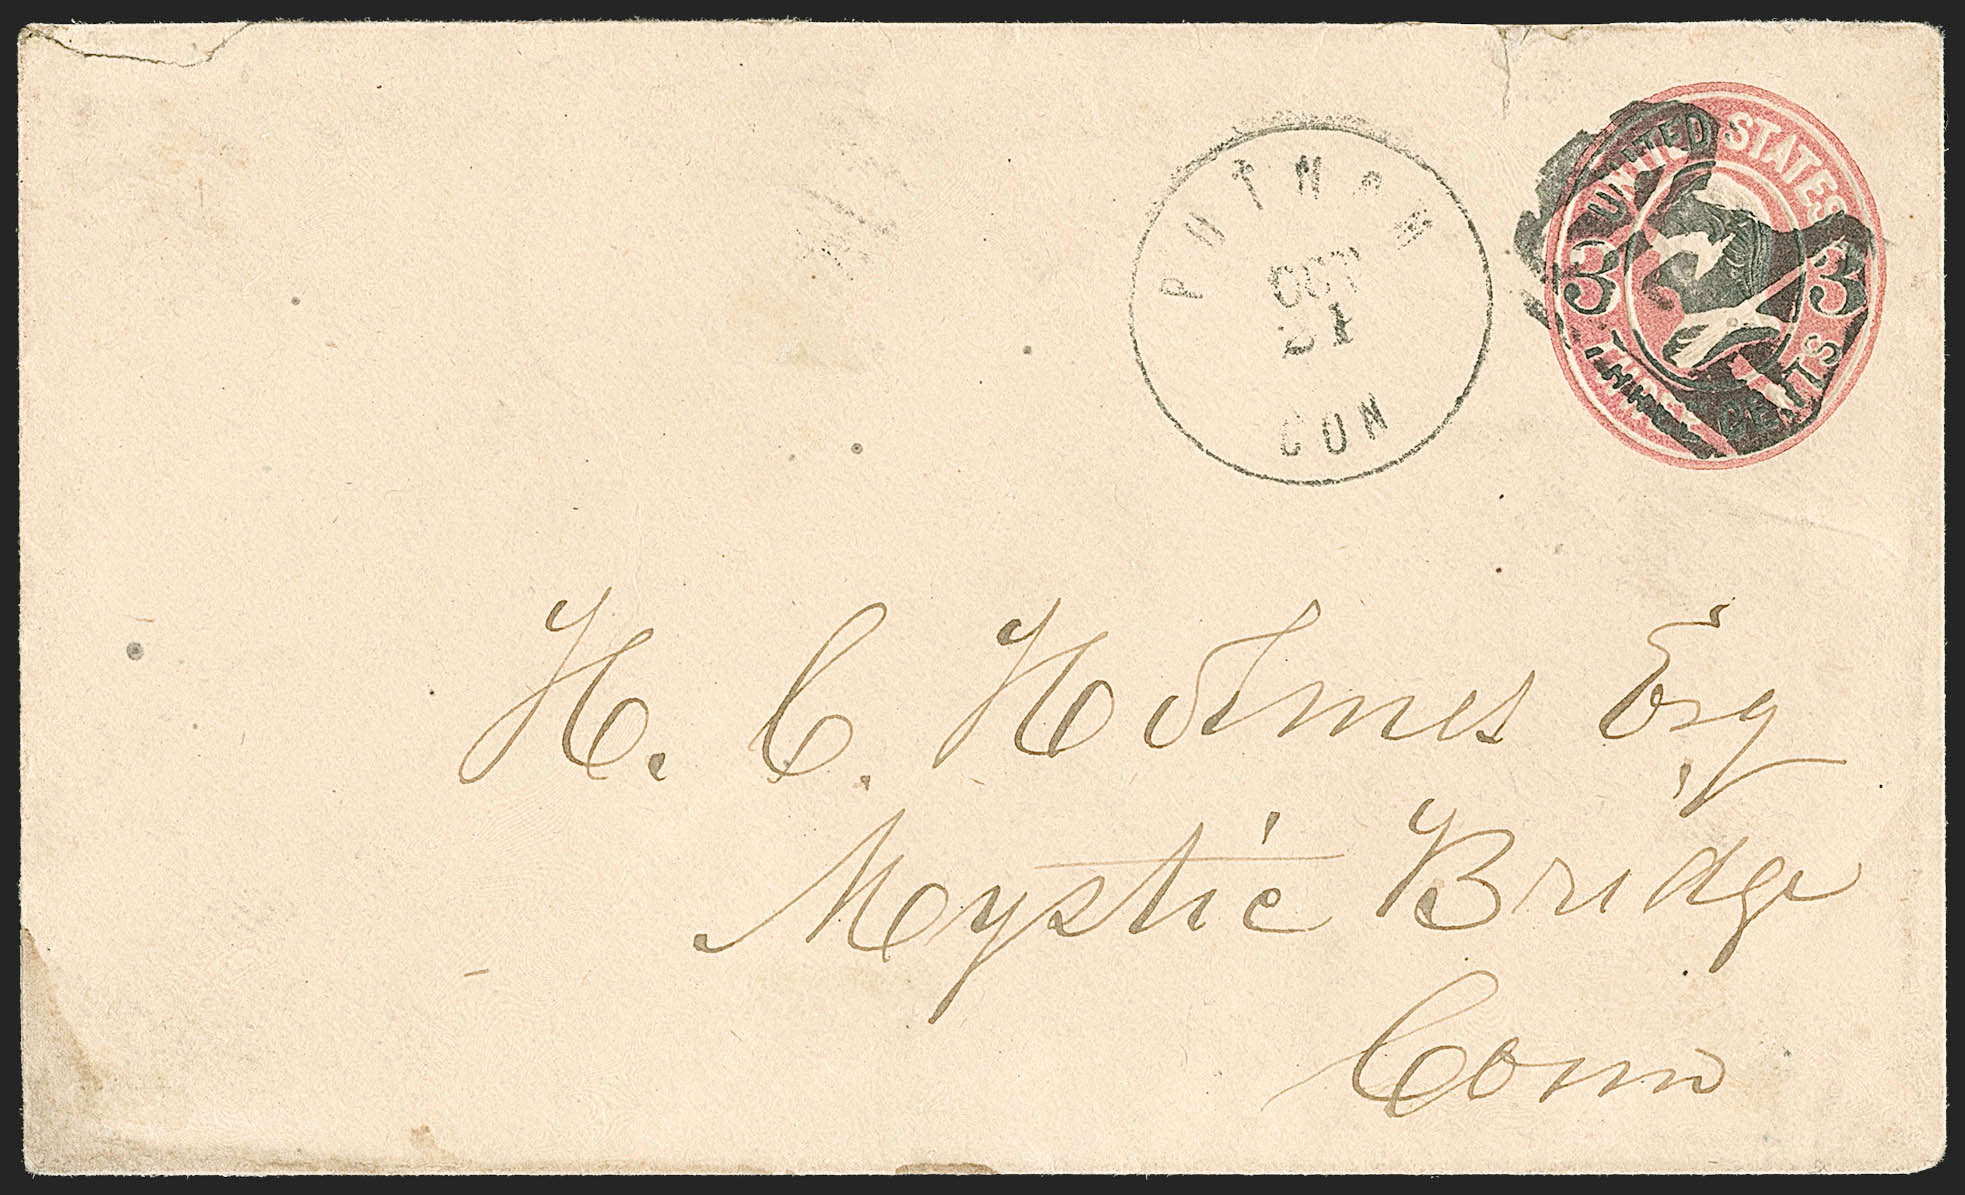 PUTNAM
OCT
31
CON
UNITED STATES
3 3
THREE CENTS
H. C. Holmes Esq
Mystic Bridge
Conn